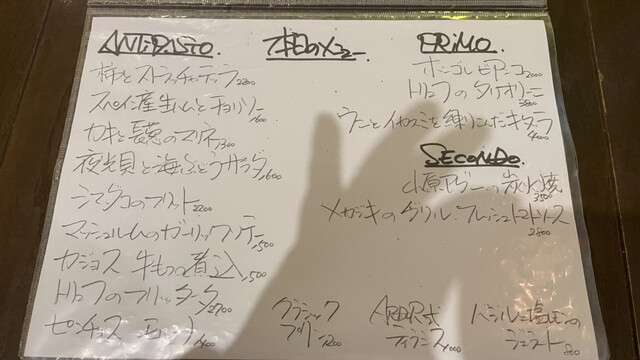 ANTIPASTO.
柿とストラッチャテッラ 2200
スペイン産生ハムとチョリソー 1600
カキと長葱のマリネ 1300
夜光貝と海ぶどうサラダ 1600
シマダコのフリット 2200
マッシュルームのガーリックソテー 1500
カジョス 牛もつの煮込 1500
トリュフのフリッタータ 2700
ピンチョス
本日のメニュー
PRIMO.
ボンゴレビアンコ 2000
トリュフのタリオリーニ
ウニとイカスミを練りこんだキタッラ 4000
SECONDO.
アグーの炭火焼 3500
メカジキのグリル フレッシュトマトソース 2800
クラシック
プリン 1200
ARDOR式
ティラミス 1000
バジルと塩レモンの
ジェラート 800